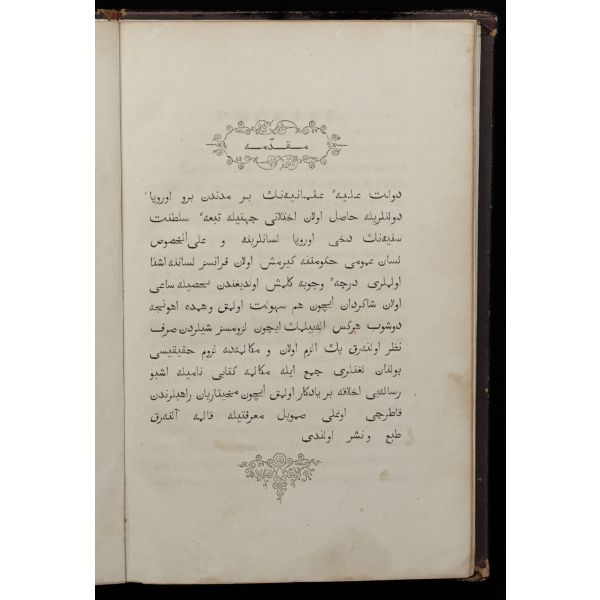 مقدّمه
دولت علیهٔ عثمانیه‌نك بر مدتدن برو اوروپا
دولتلریله حاصل اولان اختلاتی جهتیله تبعهٔ سلطنت
سنیه‌نك دخی اوروپا لسانلرینه و علی الخصوص
لسان عمومی حكومتنه كیرمش اولان فرانسز لساننه اشنا
اولملری درجهٔ وجوبه كلمش اولدیغندن تحصیله ساعی
اولان شاكردان ایچون هم سهولت اولمق وهمده
دوشوب هركس ایچون لزومسز شیلردن صرف
نظر اولنه‌رق پك الزم اولان و مكالمه‌ده لزوم حقیقیسی
بولنان لغتلری جمع ایله مكالمه كتابی نامیله اشبو
رساله‌یی اخلافه بر یادكار اولمق ایچون مخیثاریان راهبلرندن
قاطرجی اوغلی صمویل معرفتیله قلمه آلنه‌رق
طبع و نشر اولندی